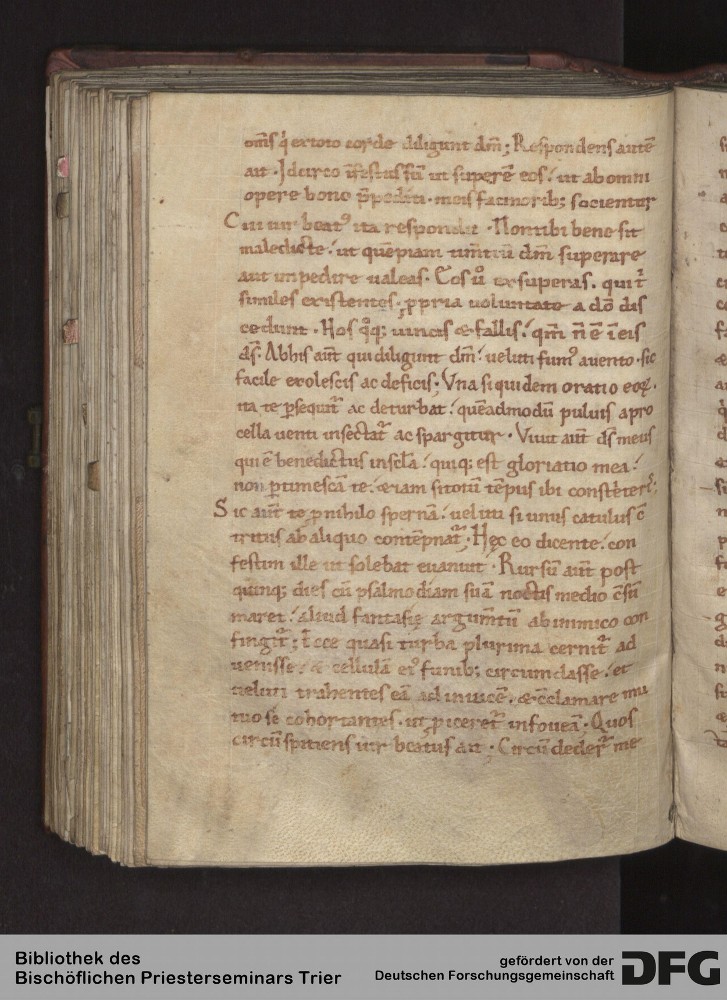 om̄s q̇ ex toto corde diligunt dm̄; Respondens autē
ait · Idcirco īfestus sū ut superē eos. ut ab omni
opere bono p̄peditı · meis facinorib; socientur
Cui uir beatꝰ ita respondit · Non tibi bene sit
maledicte. ut quēpiam dm̄ superare
aut impedire ualeas · Eos u̇o exsuperas. qui t̄
similes existentes. ꝓpria uoluntate a dō dis
cedunt · Hos q̊q; uincis & fallis. qm̄ n̄ ē ī eis
ds̄. Ab his aut̄ qui diligunt dm̄. ueluti fumꝰ a uento · sic
facile exolescis ac deficis; Vna siquidem oratio eoꝝ ·
ita te ꝑsequit᷑ ac deturbat. quēadmodū puluis a pro
cella uenti insectat᷑ ac spargitur · Viuit aut̄ ds̄ meus
qui ē benedictus in sc̄la. quiq; est gloriatio mea.
non ꝑtimescā te. etiam si totū tēpus ibi
Sic aut̄ te ꝓ nihilo spernā. ueluti si unus catulus c̄
tritus ab aliquo contēpnat᷑. Hęc eo dicente. con
festim ille ut solebat euanuit · Rursū aut̄ post
quinq; dies cū psalmodiam suā noctis medio c̄sū
maret. aliud fantasię argum̄tū ab inimico con
fingit᷑; Ecce quasi turba plurima cernit᷑ ad
uenisse. & cellulā eiꝰ funib; circumdasse. et
ueluti trahentes eā ad inuicē. & c̄clamare mu
tuo se cohortantes. ut ꝓiceret᷑ in foueā · Quos
circūspitiens uir beatus ait · Circū deder᷑ me
Bibliothek des
Bischöflichen Priesterseminars Trier
gefördert von der
Deutschen Forschungsgemeinschaft
DFG